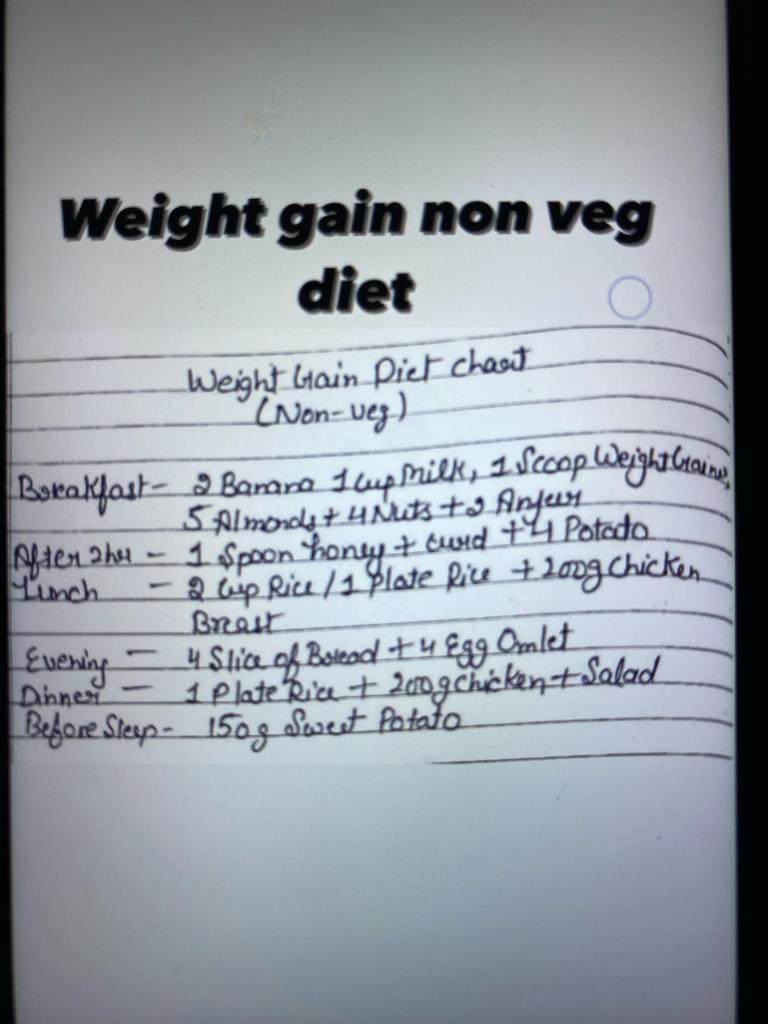 Weight gain non veg
diet
Weight Gain Diet chart
(Non-veg)
Breakfast - 2 Banana 1 Cup Milk, 1 Scoop Weight Gainer,
5 Almonds + 4 Nuts + 2 Anjeer
After 2 hrs - 1 Spoon honey + curd + 4 Potado
Lunch - 2 Cup Rice / 1 Plate Rice + 200g Chicken
Breast
Evening - 4 Slice of Bread + 4 Egg Omlet
Dinner - 1 Plate Rice + 200g chicken + Salad
Before Sleep - 150g Sweet Potato